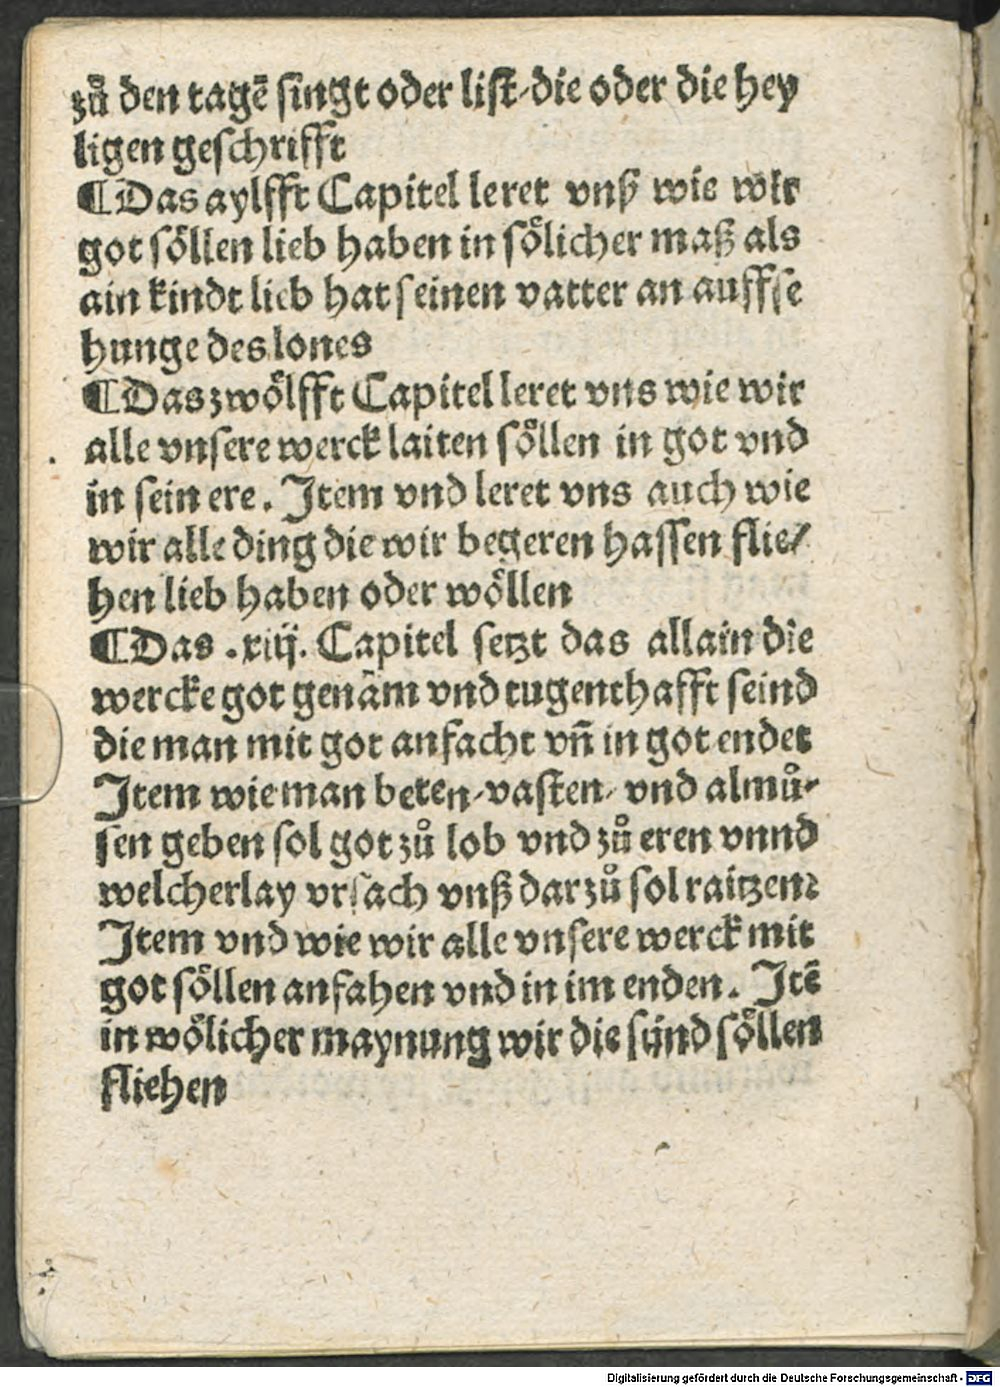 zů den tagē singt oder list/die oder die hey
ligen geschrifft
¶Das aylfft Capitel leret vnß wie wir
got söllen lieb haben in sölicher maß als
ain kindt lieb hat seinen vatter an auffse
hunge des lones
¶Das zwölfft Capitel leret vns wie wir
alle vnsere werck laiten söllen in got vnd
in sein ere. Item vnd leret vns auch wie
wir alle ding die wir begeren hassen flie/
hen lieb haben oder wöllen
¶Das .xiij. Capitel setzt das allain die
wercke got genäm vnd tugenthafft seind
die man mit got anfacht vñ in got endet
Item wie man beten/vasten/ vnd almů-
sen geben sol got zů lob vnd zů eren vnnd
welcherlay vrsach vnß darzů sol raitzen:
Item vnd wie wir alle vnsere werck mit
got söllen anfahen vnd in im enden. Itē
in wölicher maynung wir die sünd söllen
fliehen
Digitalisierung gefördert durch die Deutsche Forschungsgemeinschaft - DFG